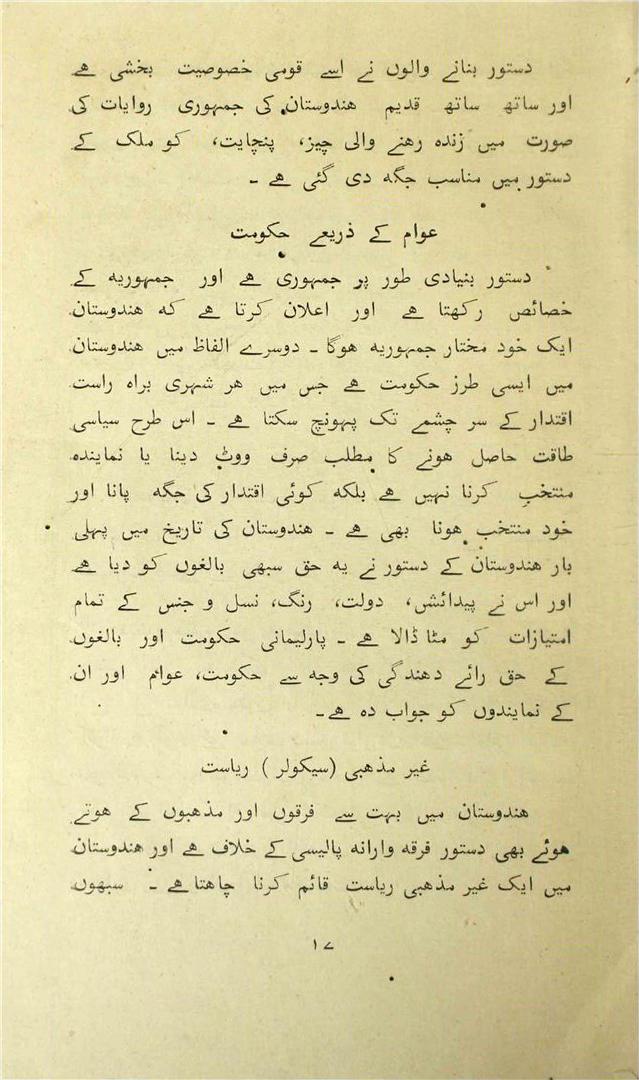 دستور بنانے والوں نے اسے قومی خصوصیت بخشی ہے
اور ساتھ ساتھ قدیم ہندوستان کی جمہوری روایات کی
صورت میں زندہ رہنے والی چیز، پنچایت، کو ملک کے
دستور میں مناسب جگہ دی گئی ہے ۔
عوام کے ذریعے حکومت
دستور بنیادی طور پر جمہوری ہے اور جمہوریہ کے
خصائص رکھتا ہے اور اعلان کرتا ہے کہ ہندوستان
ایک خود مختار جمہوریہ ہوگا ۔ دوسرے الفاظ میں ہندوستان
میں ایسی طرز حکومت ہے جس میں ہر شہری براہ راست
اقتدار کے سر چشمے تک پہونچ سکتا ہے ۔ اس طرح سیاسی
طاقت حاصل ہونے کا مطلب صرف ووٹ دینا یا نمایندہ
منتخب کرنا نہیں ہے بلکہ کوئی اقتدار کی جگہ پانا اور
خود منتخب ہونا بھی ہے ۔ ہندوستان کی تاریخ میں پہلی
بار ہندوستان کے دستور نے یہ حق سبھی بالغوں کو دیا ہے
اور اس نے پیدائش، دولت، رنگ، نسل و جنس کے تمام
امتیازات کو مٹا ڈالا ہے ۔ پارلیمانی حکومت اور بالغوں
کے حق رائے دہندگی کی وجہ سے حکومت، عوام اور ان
کے نمایندوں کو جواب دہ ہے۔
غیر مذہبی (سیکولر) ریاست
ہندوستان میں بہت سے فرقوں اور مذہبوں کے ہوتے
ہوئے بھی دستور فرقہ وارانہ پالیسی کے خلاف ہے اور ہندوستان
میں ایک غیر مذہبی ریاست قائم کرنا چاہتا ہے ۔ سبھوں
۱۷